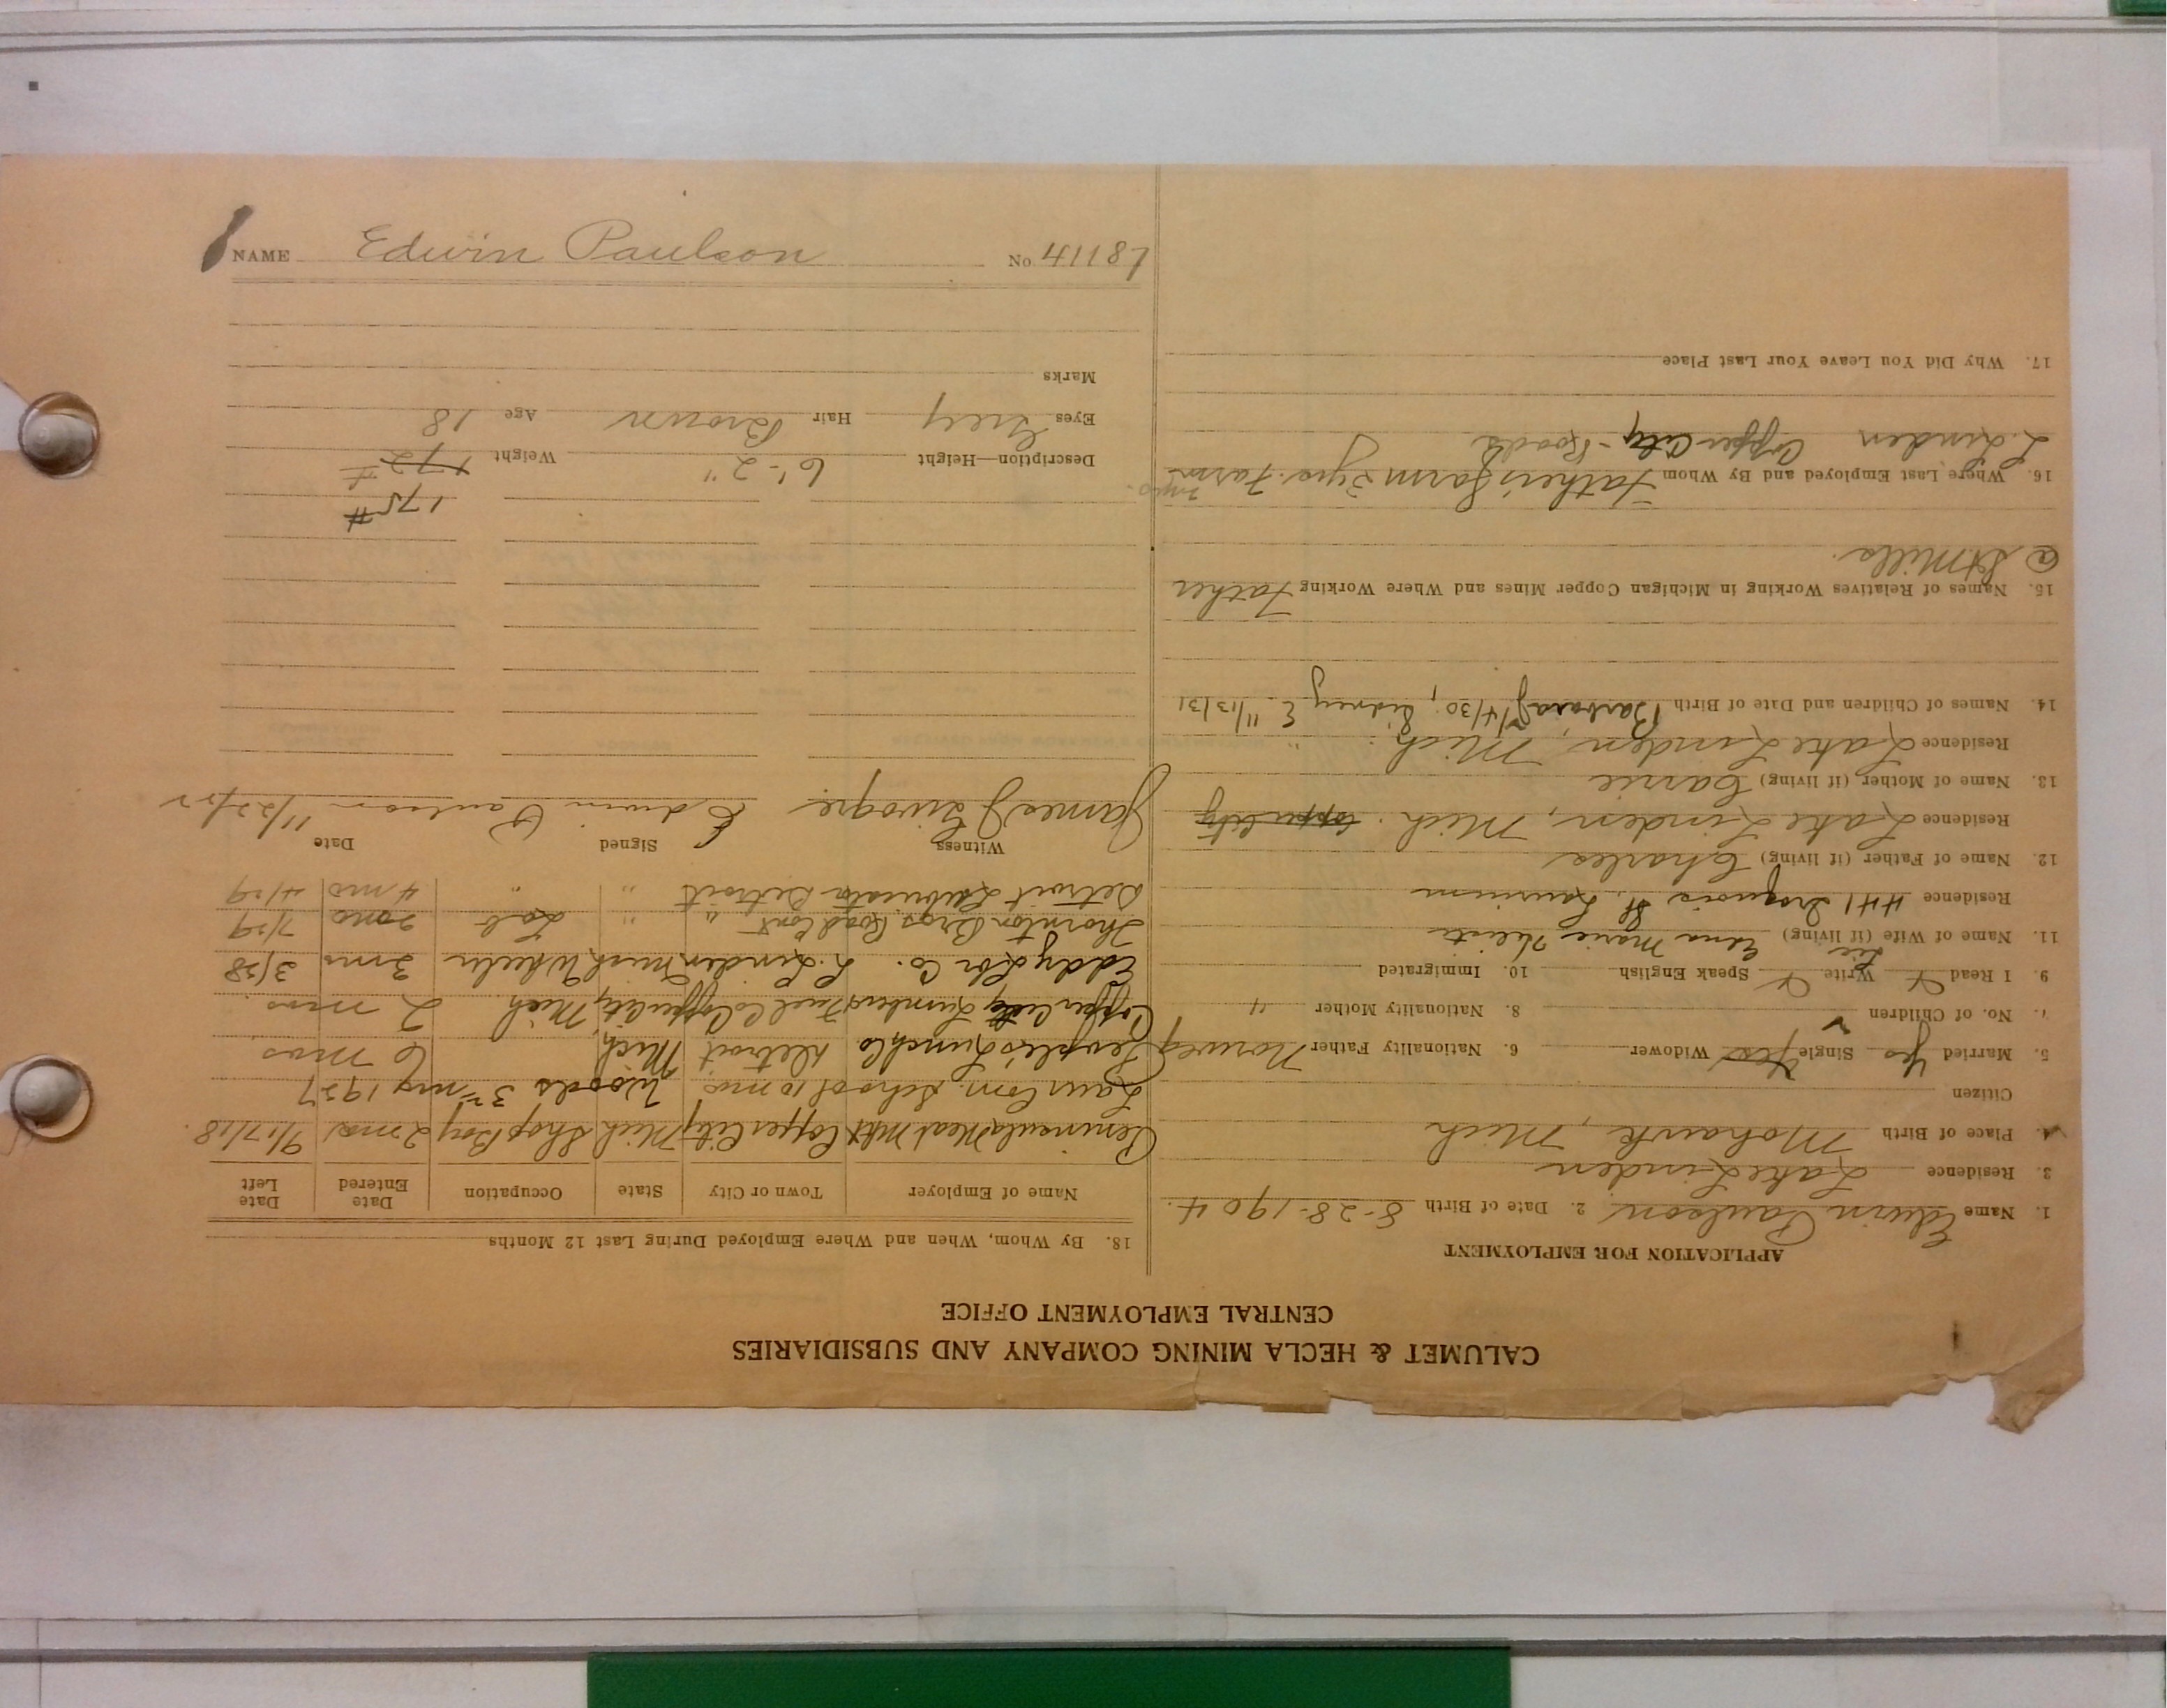 CALUMET & HECLA MINING COMPANY AND SUBSIDIARIES
CENTRAL EMPLOYMENT OFFICE
APPLICATION FOR EMPLOYMENT
1. Name Edwin Paulson 2. Date of Birth 8-28-1904.
3. Residence Lake Linden
4. Place of Birth Mohawk, Mich
Citizen
5. Married Yes Single Yes Widower 6. Nationality Father Norweg
7. No. of Children 8. Nationality Mother "
9. I Read Write Speak English 10. Immigrated
11. Name of Wife (if living) Edna Marie
Residence 441 Iroquois St, Laurium
12. Name of Father (if living) Charles
Residence Lake Linden, Mich. Copper City
13. Name of Mother (if living) Carrie
Residence Lake Linden, Mich. "
14. Names of Children and Date of Birth Barbara J /4/30; Sidney E 11/13/31
15. Names of Relatives Working in Michigan Copper Mines and Where Working Father
@ St Mills.
16. Where Last Employed and By Whom Father's farm 2 yrs. Farm
L. Linden Copper City - Roads
17. Why Did You Leave Your Last Place
18. By Whom, When and Where Employed During Last 12 Months
Name of Employer Town or City State Occupation Date Entered Date Left
Peninsula Meat Mkt Copper City Mich Shop Boy 2 mos 9/17/18.
Laur Com. School 10 mos Woods 3 mos 1927
Peoples Lunch Co Detroit Mich 6 mos.
Copper City Lumber & Fuel Co Copper City, Mich. 2 mos.
Eddy Lbr Co. L. Linden Mich Wheeler 3 mo 3/28
Thornton Bros Road Cont " " Lab 2 mo 7/29
Detroit Lubricator Detroit " " 4 mo 4/29
Witness Signed Date
James J Edwin Paulson 11/22/
175#
Description—Height 6'-2" Weight 172#
Eyes Grey Hair Brown Age 18
Marks
NAME Edwin Paulson No 41187